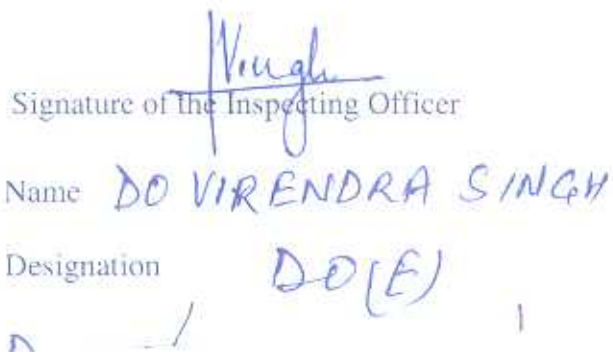 Signature of the Inspecting Officer
Name DO VIRENDRA SINGH
Designation DO(E)